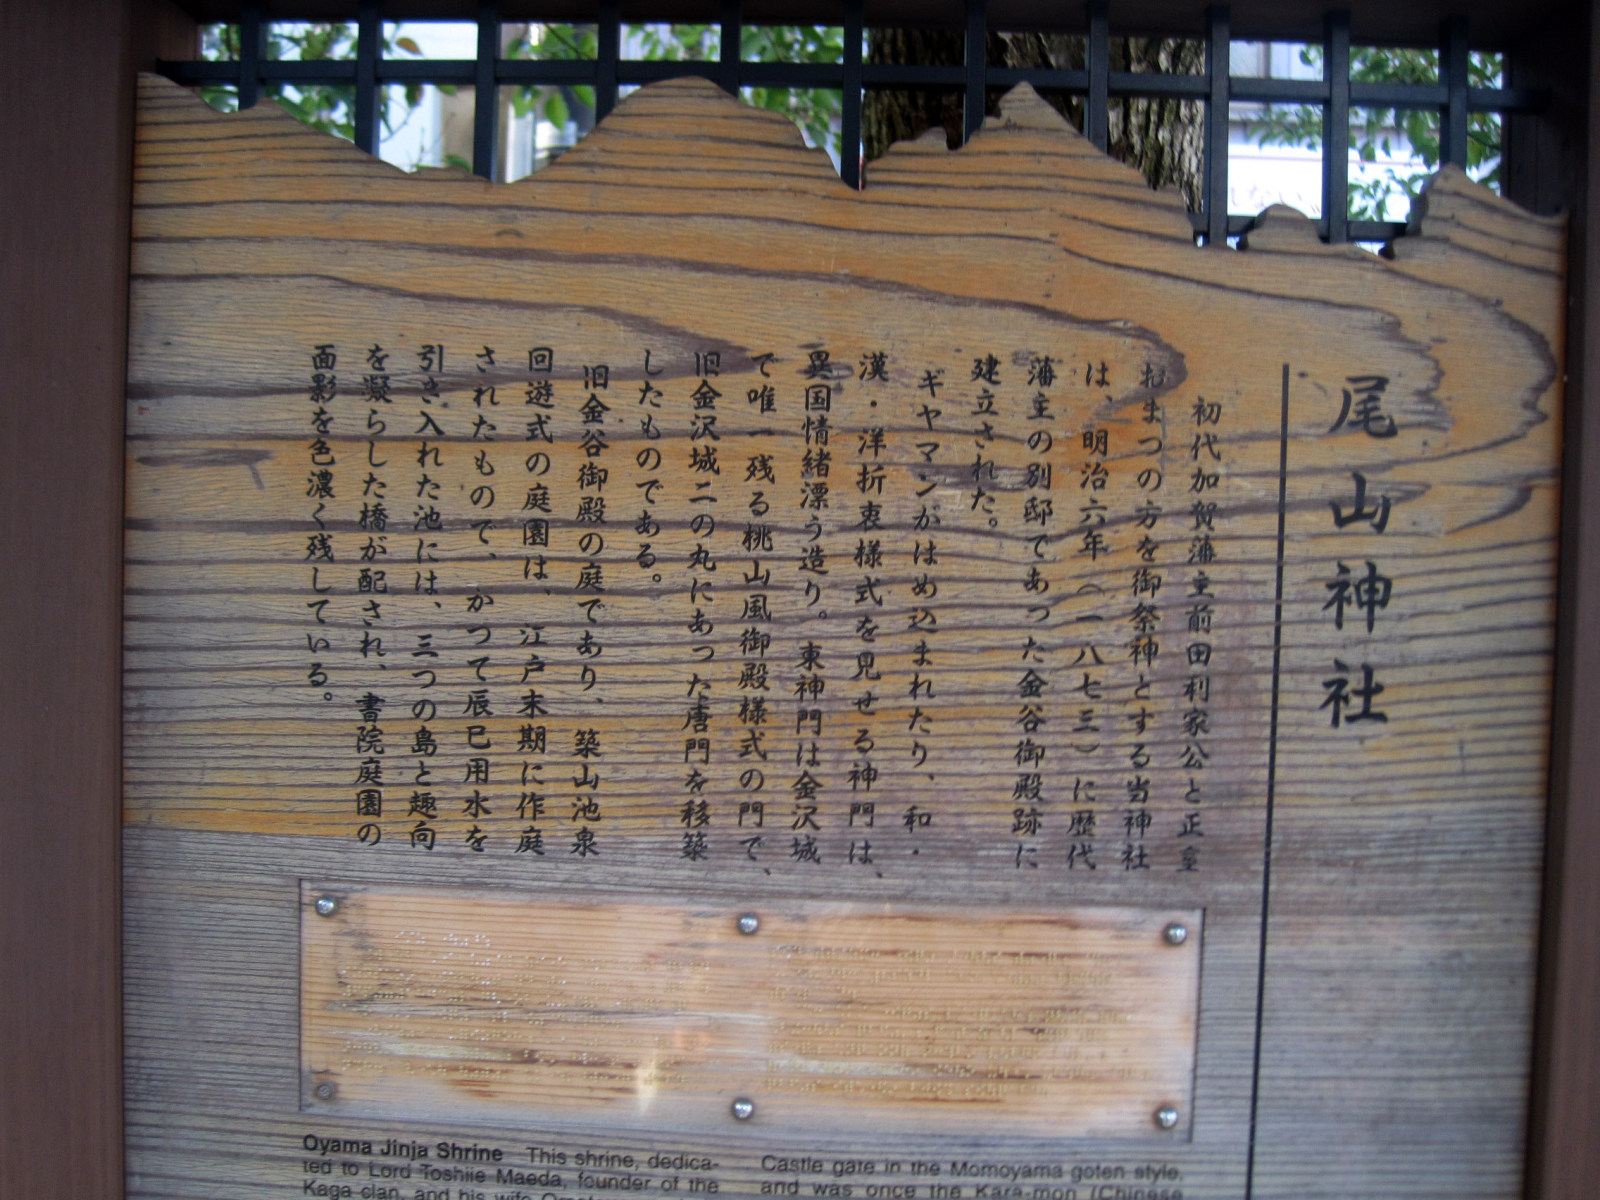 尾山神社
初代加賀藩主前田利家公と正室
おまつの方を御祭神とする当神社
は、明治六年（一八七三）に歴代
藩主の別邸であった金谷御殿跡に
建立された。
ギヤマンがはめ込まれたり、和・
漢・洋折衷様式を見せる神門は、
異国情緒漂う造り。東神門は金沢城
で唯一残る桃山風御殿様式の門で、
旧金沢城二の丸にあった唐門を移築
したものである。
旧金谷御殿の庭であり、築山池泉
回遊式の庭園は、江戸末期に作庭
されたもので、かつて辰巳用水を
引き入れた池には、三つの島と趣向
を凝らした橋が配され、書院庭園の
面影を色濃く残している。
Oyama Jinja Shrine This shrine, dedica-
ted to Lord Toshiie Maeda, founder of the
Kaga clan, and his wife
Castle gate in the Momoyama goten style,
and was once the Kara-mon (Chinese